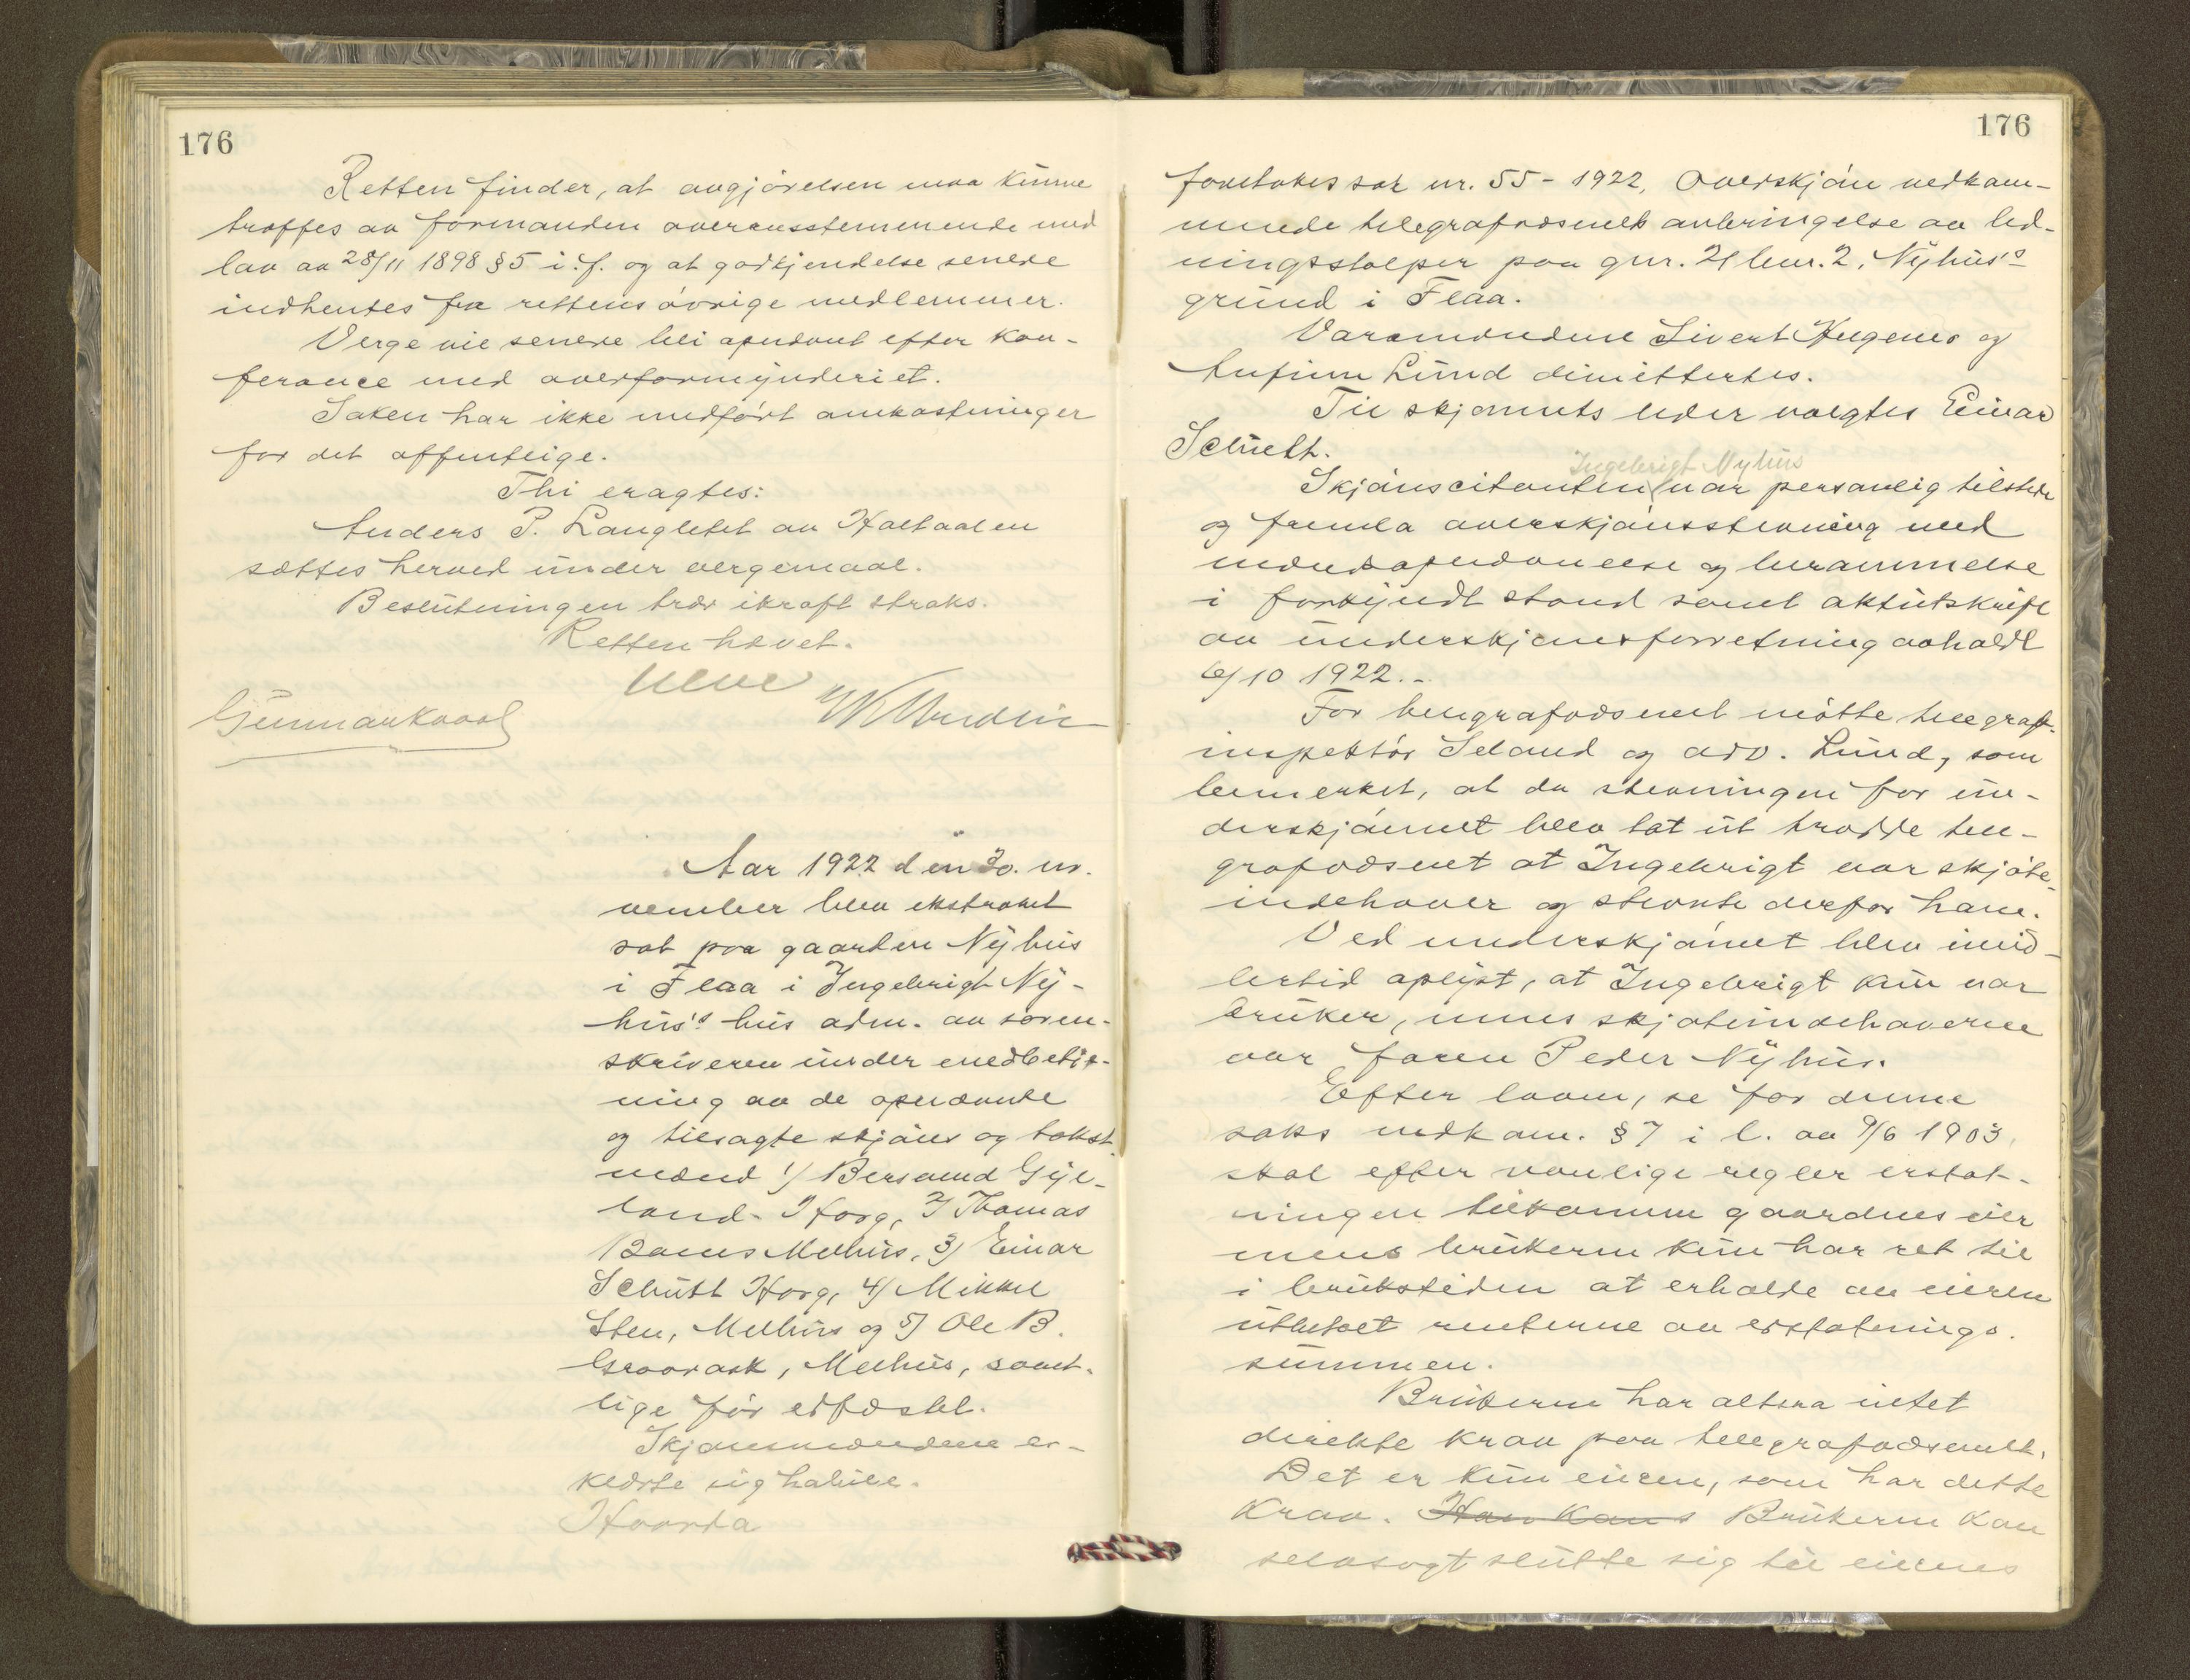 176
Retten finder, at avgjörelsen maa kunne
træffes av formanden overensstemmende med
lov av 28/11 1898 § 5 i. f. og at godkjendelse senere
indhentes fra rettens övrige medlemmer.
Verge vil senere bli opnævnt efter kon-
ferance med overformynderiet.
Saken har ikke medfört omkostninger
for det offentlige.
Thi eragtes:
Anders P. Langletet av Holtaalen
sættes herved under vergemaal.
Beslutningen trær ikraft straks.
Retten hævet.
Aar 1922 den 30. no-
vember blev ekstraret
sat paa gaarden Nyhus
i Flaa i Ingebrigt Ny-
hus's hus adm. av soren-
skriveren under medbetje-
ning av de opnævnte
og tilsagte skjöns og takst
mænd 1/ Bersvend Gyl-
land - Horg, 2/ Thomas
Melhus, 3/ Einar
Schult Horg, 4/ Mikkel
Sten, Melhus og 5/ Ole B.
Melhus, samt-
lige för edfæstet.
Skjönsmændene er-
klærte sig habile.
Hvorpaa
176
foretokes sak nr. 55 - 1922, Overskjön vedkom-
mende telegrafvæsenets anbringelse av led-
ningsstolper paa gnr. 21 bnr. 2, Nyhus's
grund i Flaa.
Varamændene Sivert og
Anfinn Lund dimittertes.
Til skjönnets leder valgtes Einar
Schult.
Ingebrigt Nyhus
Skjönscitanten var personlig tilstede
og fremla overskjönsstevning med
mændsopnævnelse og berammelse
i forkyndt stand samt aktutskrift
av underskjönsforretning avholdt
6/10 1922. -
For telegrafvæsenet mötte telegraf-
inspektör Seland og adv. Lund, som
bemerket, at da stevningen for un-
derskjönnet blev tat ut trodde tele-
grafvæsenet at Ingebrigt var skjöte-
indehaver og stevnte derfor ham.
Ved underskjönnet blev imid-
lertid oplyst, at Ingebrigt kun var
bruker, mens skjöteindehaveren
var faren Peder Nyhus.
Efter loven, se for denne
saks vedkom. § 7 i l. av 9/6 1903,
skal efter vanlige regler erstat-
ningen tilkomme gaardens eier
mens brukeren kun har ret til
i brukstiden at erholde av eieren
utbetalt renterne av erstatnings-
summen.
Brukeren har altsaa intet
direkte krav paa telegrafvæsenet.
Det er kun eieren, som har dette
krav. Han kan s Brukeren kan
selvsagt slutte sig til eierens